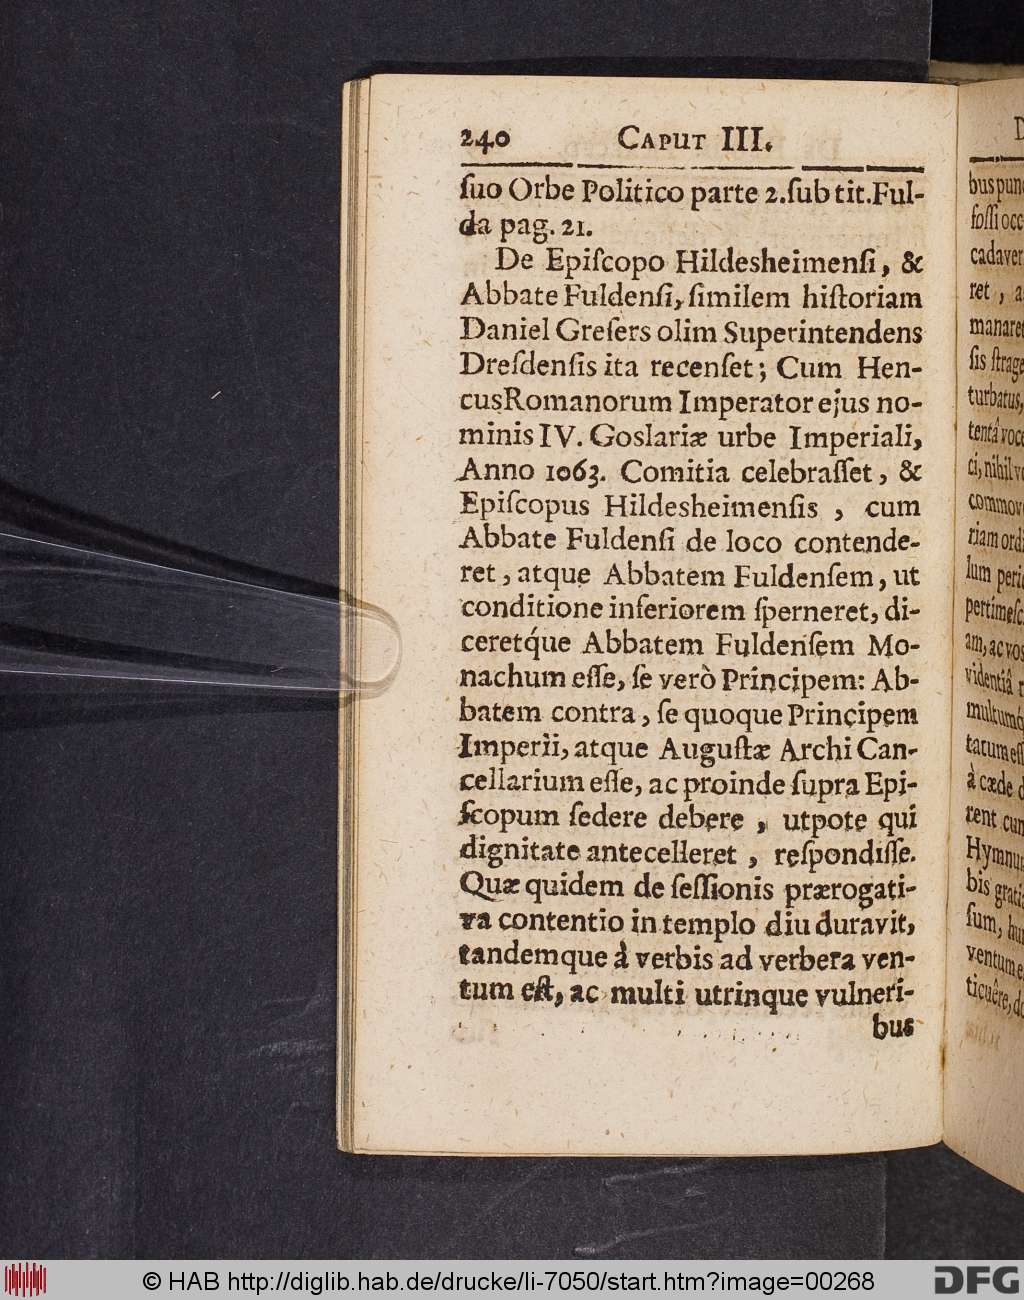 240 CAPUT III.
ſuo Orbe Politico parte 2. ſub tit. Ful-
da pag. 21.
De Epiſcopo Hildesheimenſi, &
Abbate Fuldenſi, ſimilem hiſtoriam
Daniel Greſers olim Superintendens
Dreſdenſis ita recenſet; Cum Hen-
cus Romanorum Imperator ejus no-
minis IV. Goslariæ urbe Imperiali,
Anno 1063. Comitia celebraſſet, &
Epiſcopus Hildesheimenſis, cum
Abbate Fuldenſi de loco contende-
ret, atque Abbatem Fuldenſem, ut
conditione inferiorem ſperneret, di-
ceretq́ue Abbatem Fuldenſem Mo-
nachum eſſe, ſe verò Principem: Ab-
batem contra, ſe quoque Principem
Imperii, atque Auguſtæ Archi Can-
cellarium eſſe, ac proinde ſupra Epi-
ſcopum ſedere debere, utpote qui
dignitate antecelleret, reſpondiſſe.
Quæ quidem de ſeſſionis prærogati-
va contentio in templo diu duravit,
tandemque à verbis ad verbera ven-
tum eſt, ac multi utrinque vulneri-
bus
D
bus pun
foſſi occ
cadaver
ret, a
manaret
ſis ſtrage
turbatus,
tentâ voce
ci, nihil ve
commov
riam ordi
lum peri
pertimeſc
am, ac vos
videntiâ
multumq́
tatum eſ
à cæde d
rent cum
Hymnu
bis grati
ſum, hu
ventum e
ticuêre, d
© HAB http://diglib.hab.de/drucke/li-7050/start.htm?image=00268
DFG